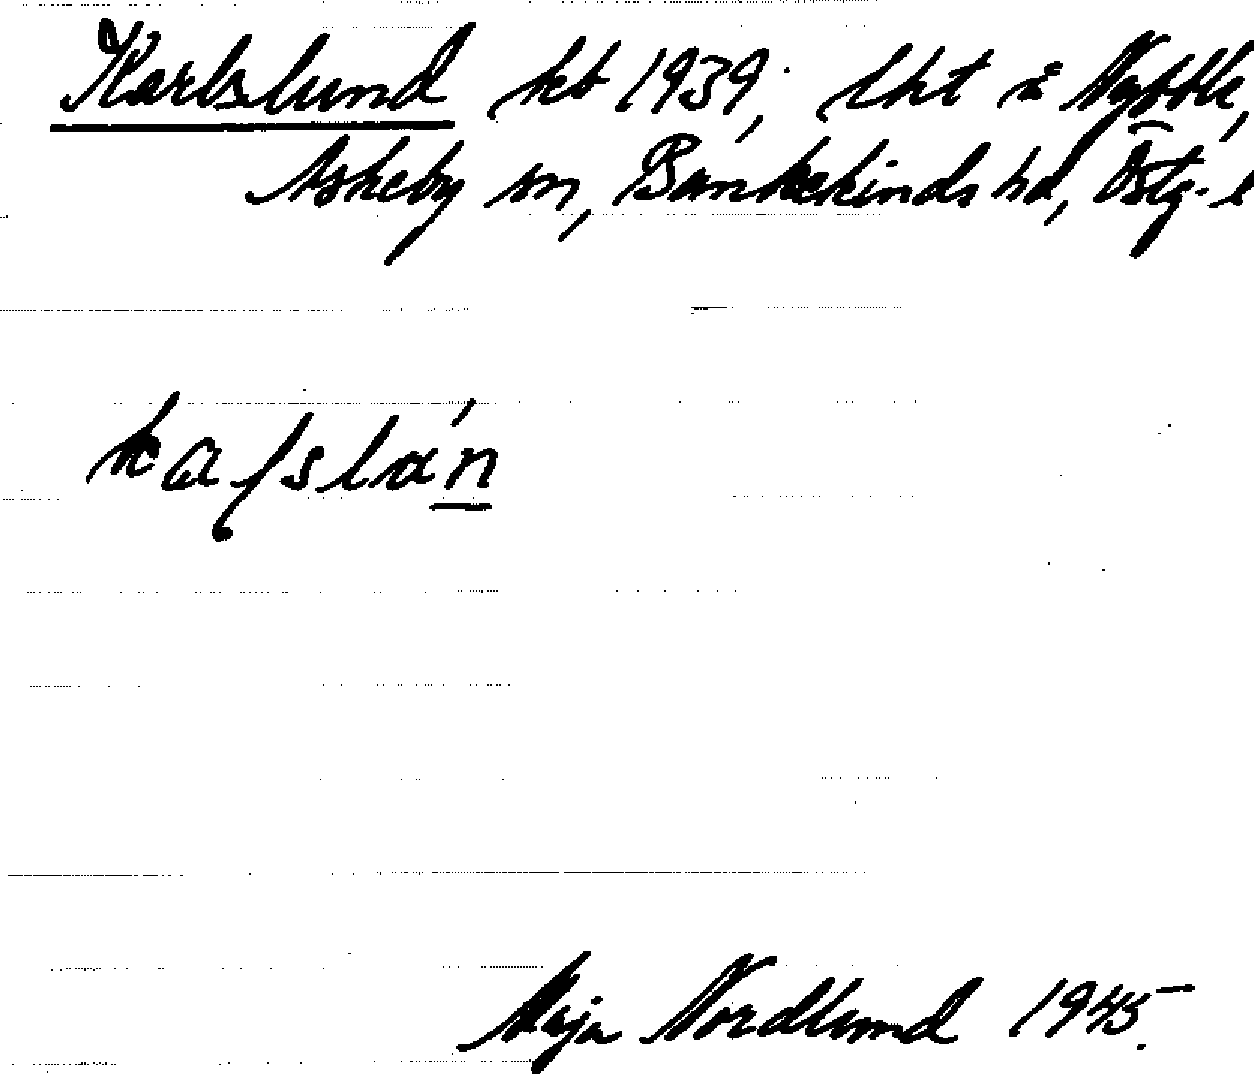 Karlslund kb 1939, lht i Nybble,
Askeby sn, Bankekinds hd, Östg. l
kaʃslán
Maja Nordlund 1945.